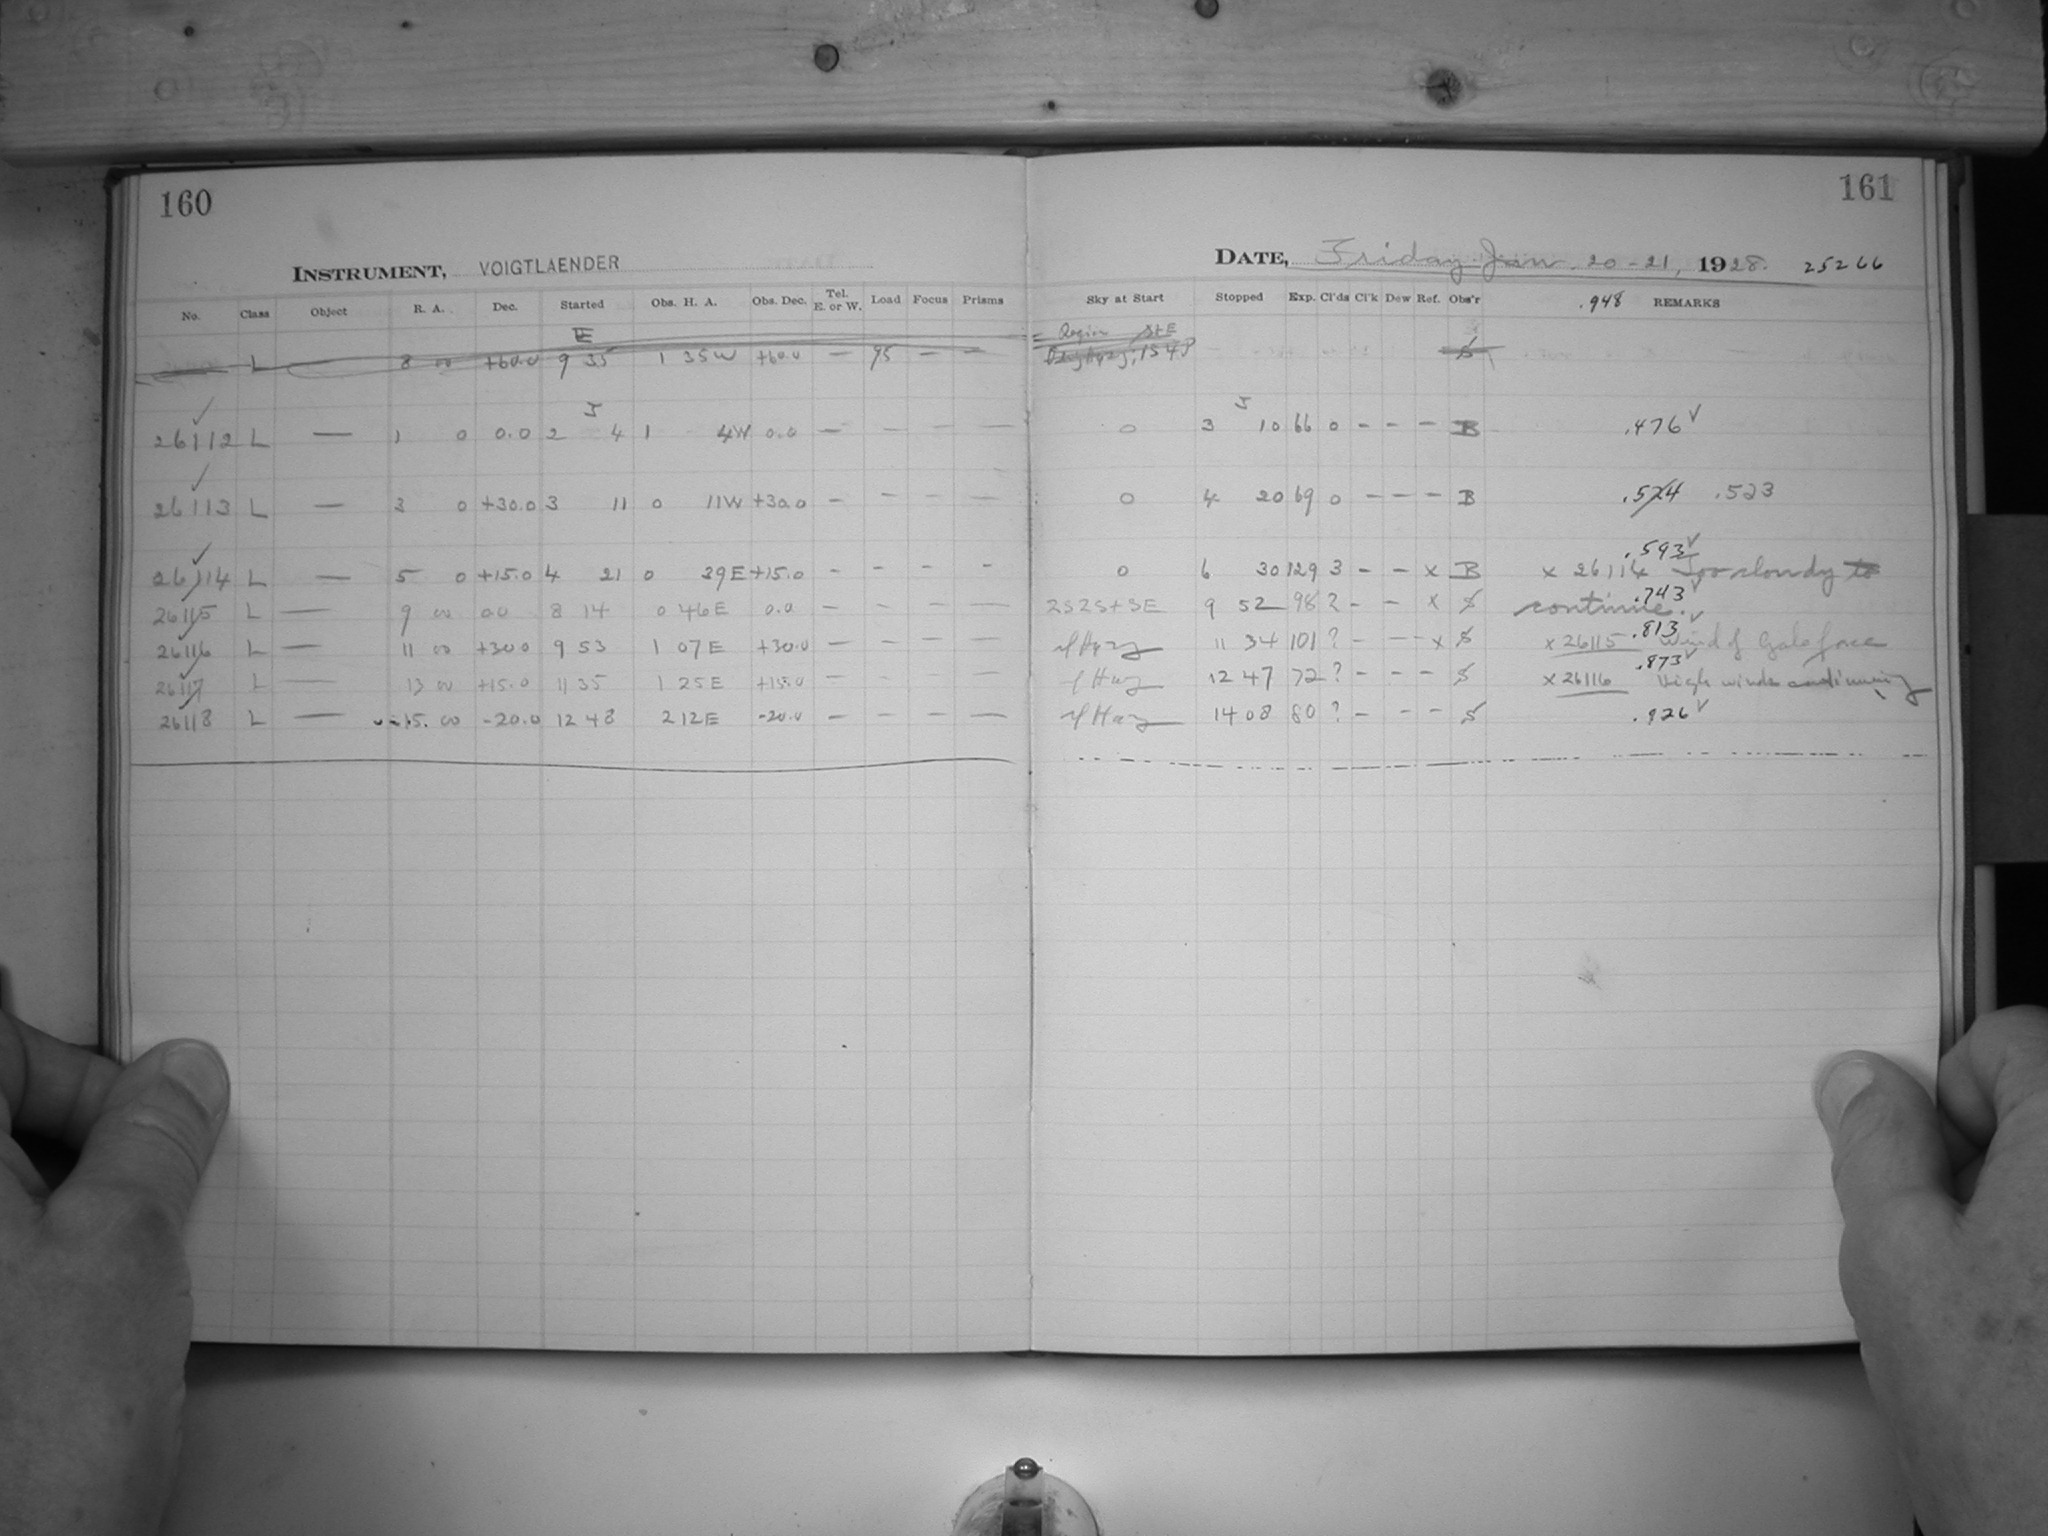 160
161
INSTRUMENT, VOIGTLAENDER
DATE, Friday Jan. 20-21, 1928. 25266
No. Class Object R. A. Dec. Started Obs. H. A. Obs. Dec. Tel. E. or W. Load Focus Prisms Sky at Start Stopped Exp. Cl'ds Cl'k Dew Ref. Obs'r .948 REMARKS
E Region
L 8 00 +60.0 9 35 1 35W +60.0 — 95 — — S
26112 L — 1 0 0.0 2 4 1 4W 0.0 — — — — 0 3 10 66 0 - - - B .476
26113 L — 3 0 +30.0 3 11 0 11W +30.0 - - - - 0 4 20 69 0 - - - B .524 .523
.593
26114 L — 5 0 +15.0 4 21 0 39E +15.0 - - - - 0 6 30 129 3 - - x B x 26114 Too cloudy to
.743
26115 L — 9 00 0.0 8 14 0 46E 0.0 — - - - 2S2S+SE 9 52 98 ? - - x S continue.
.813
26116 L — 11 00 +30.0 9 53 1 07E +30.0 — — — — 11 34 101 ? - - x S x 26115 Wind of Gale force
.873
26117 L — 13 00 +15.0 11 35 1 25E +15.0 — - - - 12 47 72 ? - - - S x 26116 High winds continuing
26118 L — 15. 00 -20.0 12 48 2 12E -20.0 — — — — 14 08 80 ? - - - S .926